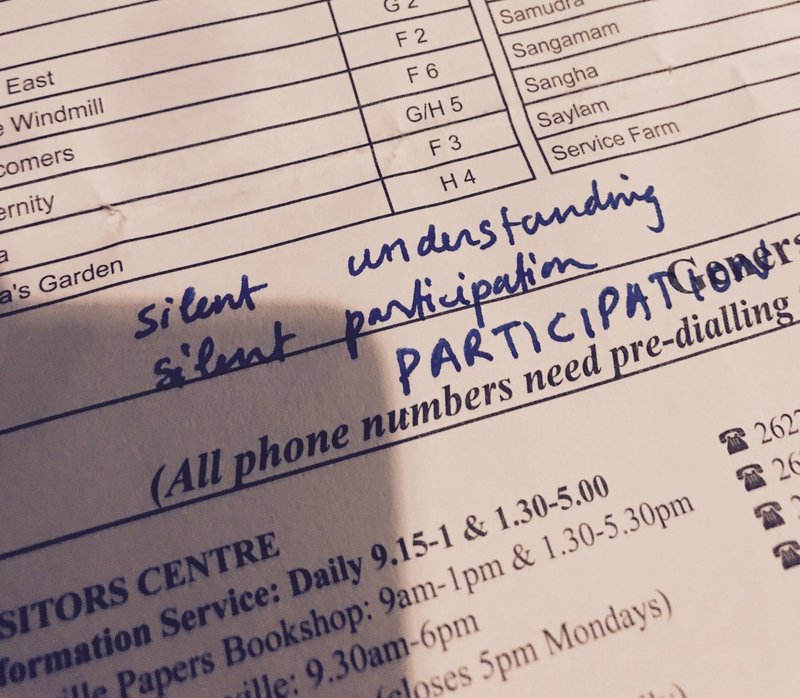 G 2
F 2
East
F 6
Windmill
G/H 5
comers
F 3
ernity
H 4
a
a's Garden
Samudra
Sangamam
Sangha
Saylam
Service Farm
silent understanding
silent participation
PARTICIPATION
(All phone numbers need pre-dialling
SITORS CENTRE
formation Service: Daily 9.15-1 & 1.30-5.00
ille Papers Bookshop: 9am-1pm & 1.30-5.30pm
ville: 9.30am-6pm
(closes 5pm Mondays)
☎ 262
☎ 26
☎ 2
☎